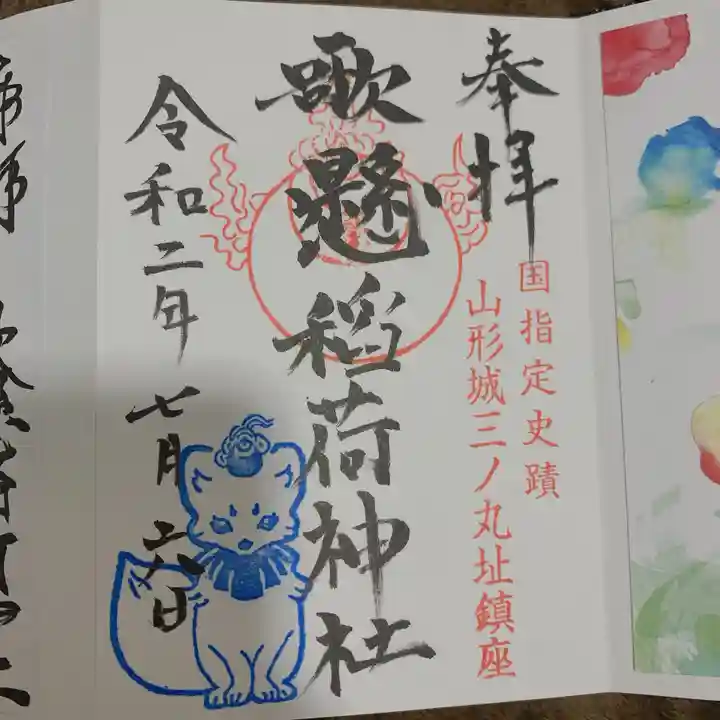 奉拝
国指定史蹟
山形城三ノ丸址鎮座
歌懸稲荷神社
令和二年七月六日